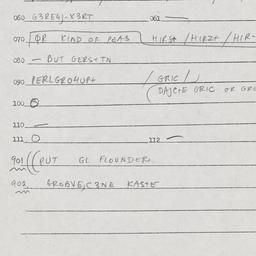 060 G3RE4J-K3RT 061 —
070 OR KIND OF PEAS HIRST / HIRZT / HIR-
080 — BUT GERSTTN
090 PERLGR04UP+ / GRIC /
( DAJC+E GRIC OR GRE
100 0
110 —
111 0 112 —
901 (( PUT GL FLOUNDER.
902 GROBVE, C3NE KASTE